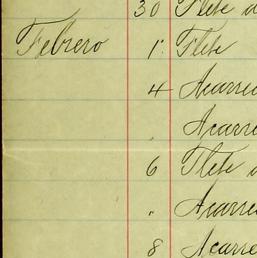 30 Flete
Febrero 1. Flete
4 Acarreo
Acarreo
6 Flete
" Acarreo
8 Acarreo